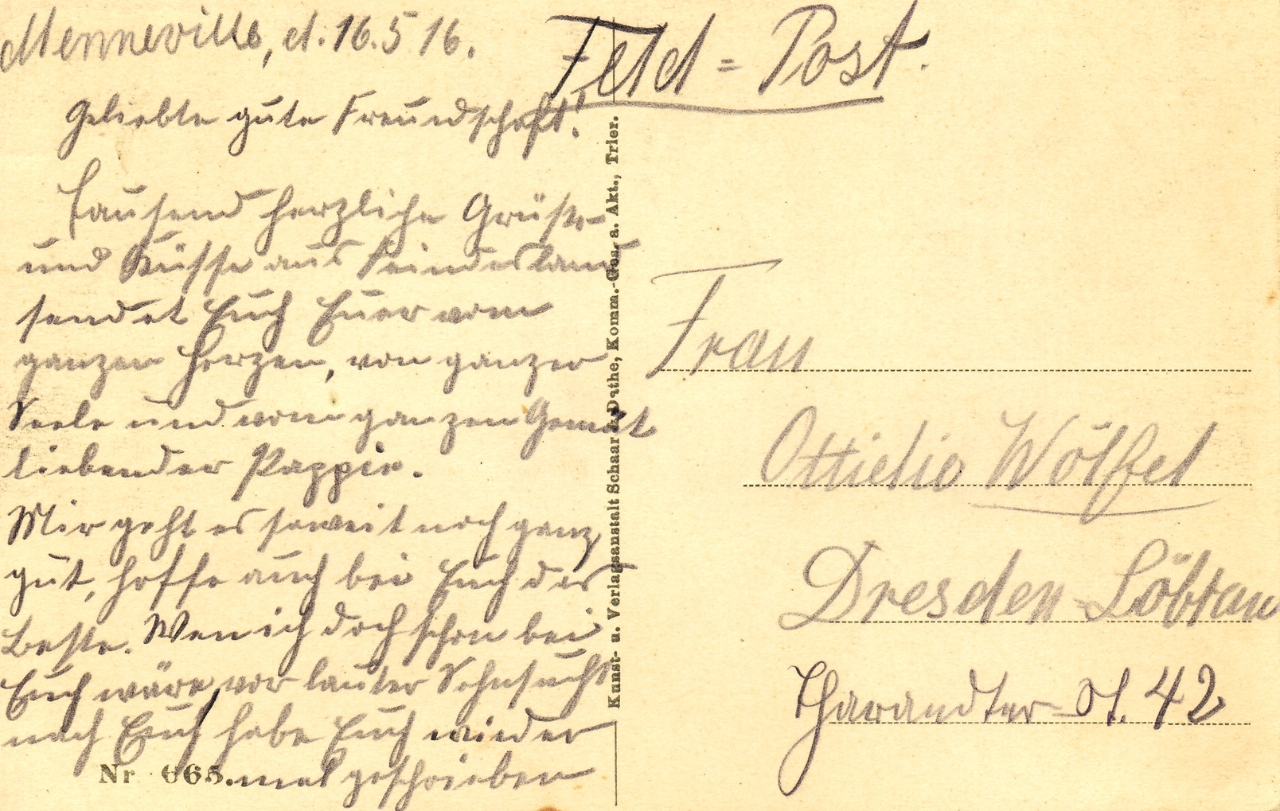 Menneville, d. 16.5 16.
Feld=Post.
Geliebte gute Freundschaft!
Tausend herzliche Grüße
und Küsse aus Feindesland
sendet Euch Euer vom
ganzen Herzen, von ganzer
Seele und vom ganzen Gemüt
liebender Pappie.
Mir geht es soweit noch ganz
gut, hoffe auch bei Euch das
Beste. Wen ich doch schon bei
Euch wäre, vor lauter Sehnsucht
nach Euch habe Euch wieder
mal geschrieben
Nr 665.
Kunst- u. Verlagsanstalt Schaar & Dathe, Komm.-Ges. a. Akt., Trier.
Frau
Ottielie Wölfel
Dresden=Löbtau
Tharandter St. 42